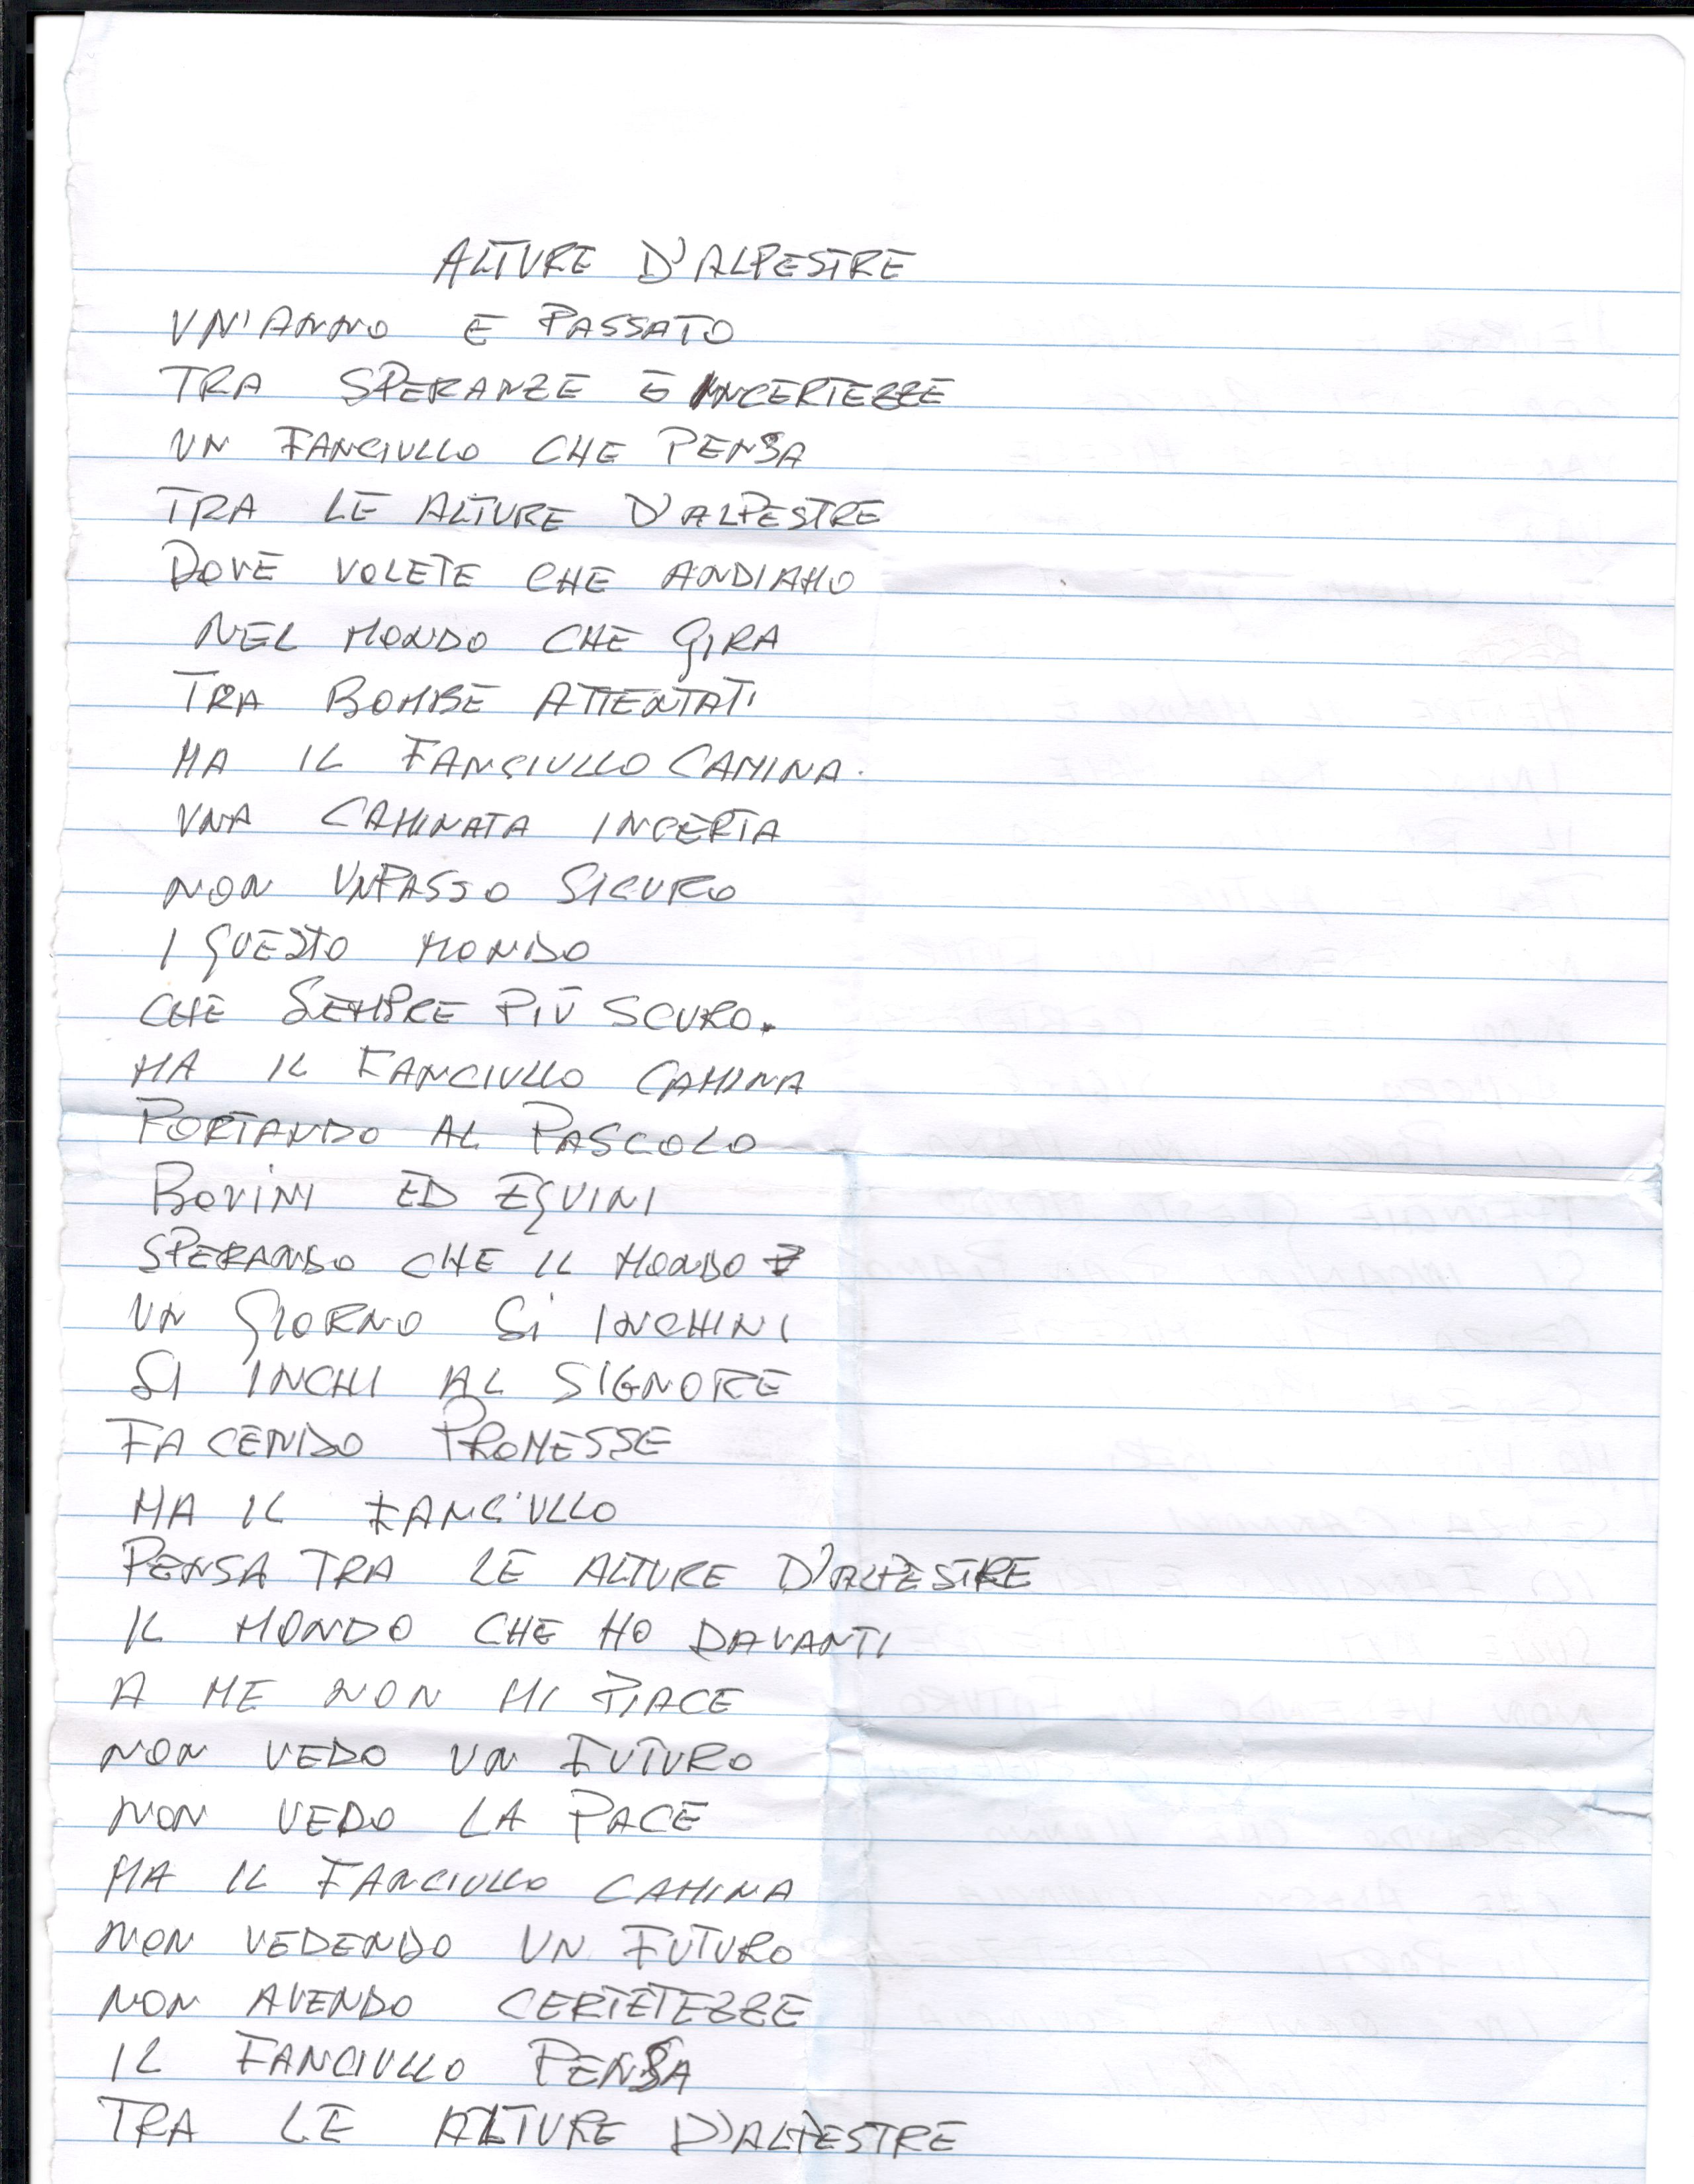 ALTURE D'ALPESTRE
UN'ANNO E PASSATO
TRA SPERANZE E INCERTEZZE
UN FANCIULLO CHE PENSA
TRA LE ALTURE D'ALPESTRE
DOVE VOLETE CHE ANDIAMO
NEL MONDO CHE GIRA
TRA BOMBE ATTENTATI
MA IL FANCIULLO CAMINA.
UNA CAMINATA INCERTA
NON UN PASSO SICURO
I QUESTO MONDO
CHE SEMPRE PIÙ SCURO.
MA IL FANCIULLO CAMINA
PORTANDO AL PASCOLO
BOVINI ED EQUINI
SPERANDO CHE IL MONDO
UN GIORNO SI INCHINI
SI INCHI AL SIGNORE
FACENDO PROMESSE
MA IL FANCIULLO
PENSA TRA LE ALTURE D'ALPESTRE
IL MONDO CHE HO DAVANTI
A ME NON MI PIACE
NON VEDO UN FUTURO
NON VEDO LA PACE
MA IL FANCIULLO CAMINA
NON VEDENDO UN FUTURO
NON AVENDO CERTETEZZE
IL FANCIULLO PENSA
TRA LE ALTURE D'ALPESTRE